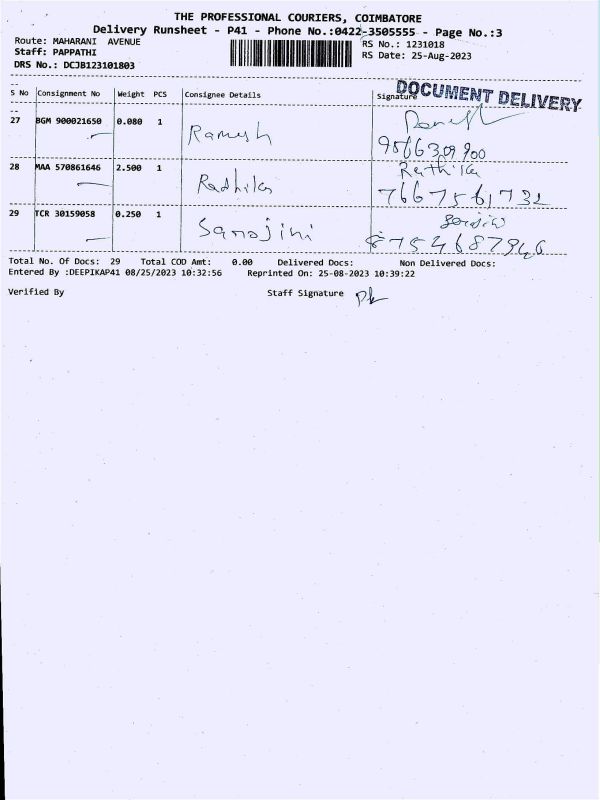 THE PROFESSIONAL COURIERS, COIMBATORE
Delivery Runsheet - P41 - Phone No.:0422-3505555 - Page No.:3
Route: MAHARANI AVENUE RS No.: 1231018
Staff: PAPPATHI RS Date: 25-Aug-2023
DRS No.: DCJB123101803
DOCUMENT DELIVERY
S No Consignment No Weight PCS Consignee Details Signature
27 BGM 900021650 0.080 1 Ramesh
28 MAA 570861646 2.500 1 Radhika
7667561732
29 TCR 30159058 0.250 1 Sarojini
8754687946
Total No. Of Docs: 29 Total COD Amt: 0.00 Delivered Docs: Non Delivered Docs:
Entered By :DEEPIKAP41 08/25/2023 10:32:56 Reprinted On: 25-08-2023 10:39:22
Verified By Staff Signature